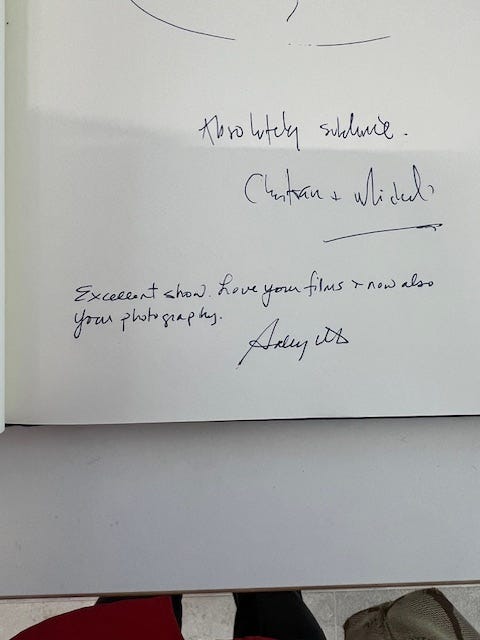 Absolutely sublime.
Christian +
Excellent show. Love your films + now also
your photography.